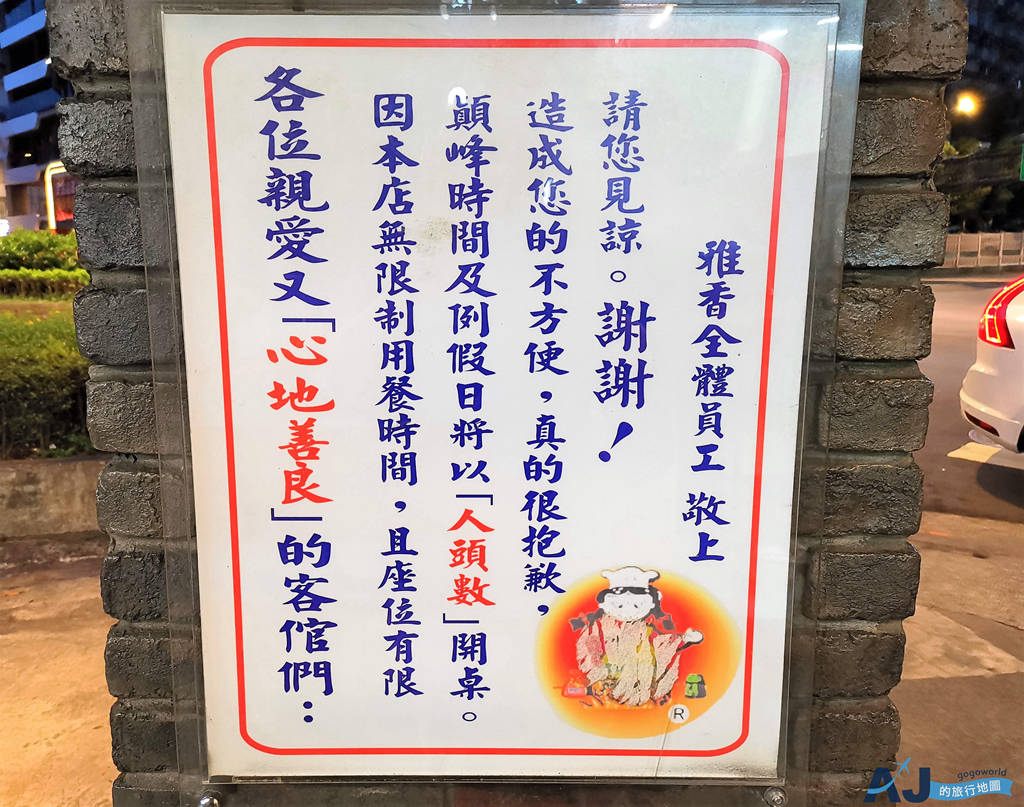 各位親愛又「心地善良」的客倌們：
因本店無限制用餐時間，且座位有限
顛峰時間及例假日將以「人頭數」開桌。
造成您的不方便，真的很抱歉，
請您見諒。謝謝！
雅香全體員工 敬上
R
AJ
gogoworld
的旅行地圖